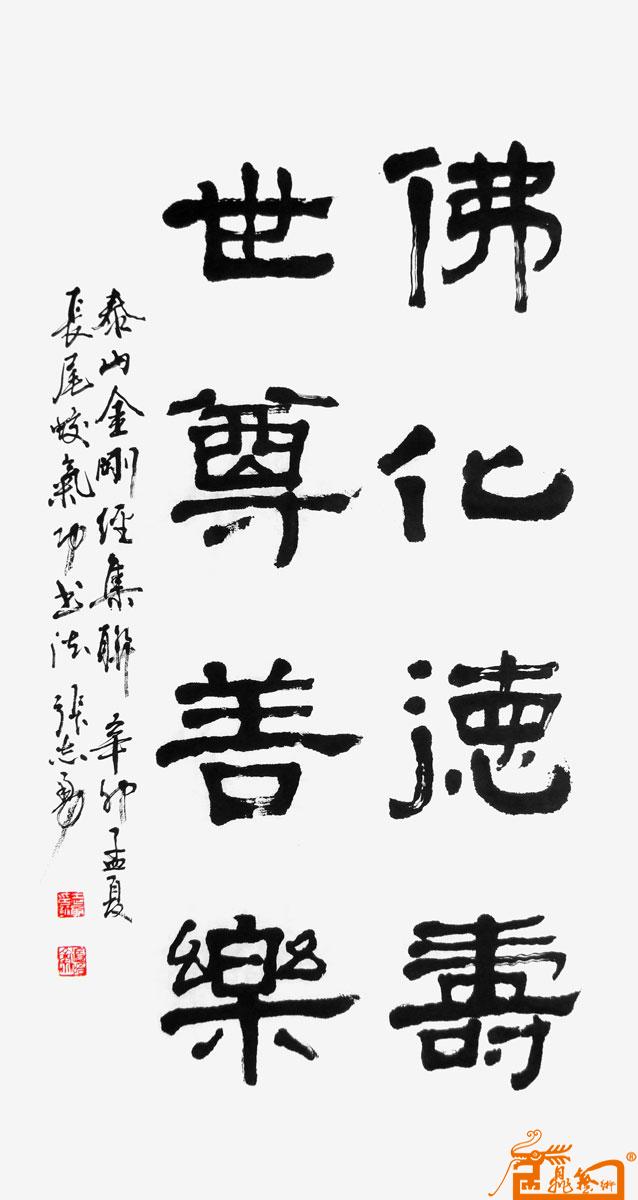 佛化德壽
世尊善樂
泰山金剛經集聯 辛卯孟夏
長尾蛟氣功书法 張志勇